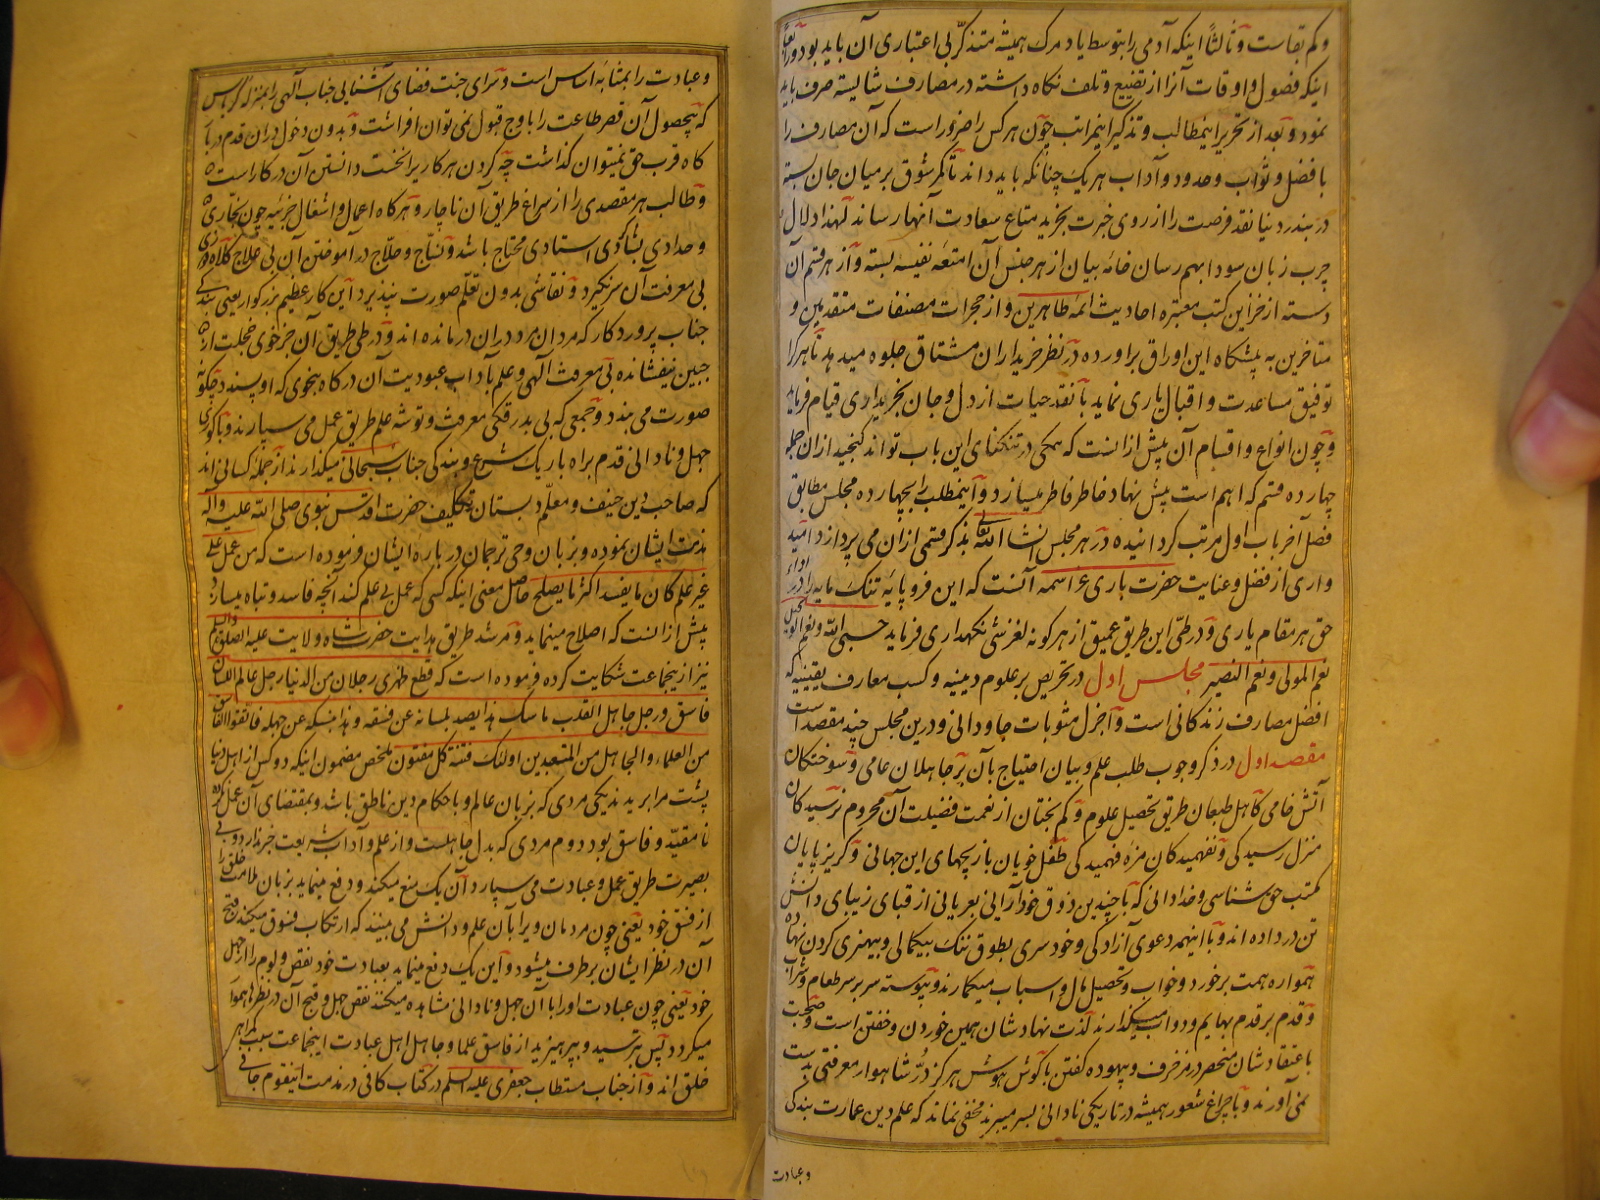 و کم بقاست و ثالثاً اینکه آدمی را بتوسط یاد مرک همیشه متذکر بی اعتباری آن باید بود و رابعاً
اینکه فصول و اوقات آنرا از تضییع و تلف نکاه داشته در مصارف شایسته صرف باید
نمود و بعد از تحریر اینمطالب و تذکیر اینمراتب چون هر کس را ضرور است که آن مصارف را
با فضل و ثواب و حدود و آداب هر یک چنانکه باید داند تا کمر شوق بر میان جان بسته
در بندر دنیا نقد فرصت را از روی خبرت بخرید متاع سعادت آنها رساند لهذا دلال
چرب زبان سودا بهم رسان خامه بیان از هر جنس آن امتعه نفیسه بسته و از هر قسم آن
دسته از خزاین کتب معتبره احادیث ائمه طاهرین و از حجرات مصنفات متقدمین و
متاخرین به پیشکاه این اوراق براورده در نظر خریداران مشتاق جلوه میدهد تا هر کرا
توفیق مساعدت و اقبال یاری نماید با نقد حیات از دل و جان بخریداری قیام فرماید
و چون انواع و اقسام آن پیش ازانست که همکی در تنکنای این باب تواند کنجید ازان جمله
چهارده قسم که اهم است پیش نهاد خاطر فاطر میسازد و اینمطلب را بچهارده مجلس مطابق
فصل آخر باب اول مرتب کردانیده در هر مجلس انشا الله تعالی بذکر قسمی ازان می پردازد امید
واری از فضل و عنایت حضرت باری عز اسمه آنست که این فروپایه تنک مایه را در اداء
حق هر مقام یاری و در طی این طریق عمیق از هر کونه لغزشی نکهداری فرماید حسبی الله و نعم الوکیل
نعم المولی و نعم النصیر مجلس اول در تحریص بر علوم دینیه و کسب معارف یقینیه که
افضل مصارف زندکانی است و اجزل مثوبات جاودانی و درین مجلس چند مقصد است
مقصد اول در ذکر وجوب طلب علم و بیان احتیاج بآن بر جاهلان عامی و سوختکان
آتش خامی کاهل طبعان طریق تحصیل علوم و کم بختان از نعمت فضیلت آن محروم نرسیدکان
منزل رسیدکی و نفهمیدکان مزه فهمیدکی طفل خویان بازیچهای این جهانی و کریز پایان
مکتب حق شناسی و خدادانی که با چندین ذوق خودآرایی بعریانی از قبای زیبای دانش
تن در داده اند و با اینهمه دعوی آزادکی و خودسری بطوق ننک بیکمالی و بیهنری کردن نهاده
همواره همت بر خورد و خواب و تحصیل مال و اسباب میکمارند و پیوسته سر بر سر طعام و شراب
و قدم بر قدم بهایم و دواب میکذارند لذت نهادشان همین خوردن و خفتن است و صحبت
باعتقادشان منحصر در مزخرف و بیهوده کفتن با کوش هوش هرکز در شاهوار معرفتی بدست
نمی آورند و با چراغ شعور همیشه در تاریکی نادانی بسر میبرند مخفی نماند که علم دین عمارت بندکی
و عبادت
و عبادت را بمثابه اساس است و سرای جنت فضای آشنایی جناب الهی را بمنزله کریاس
که بیحصول آن قصر طاعت را باوج قبول نمی توان افراشت و بدون دخول دران قدم در
کاه قرب حق نمیتوان کذاشت چه کردن هر کار را نخست دانستن آن در کار است
و طالب هر مقصدی را از سراغ طریق آن ناچار و هرکاه اعمال و اشغال جزئیه چون نجاری
و حدادی بشاکردی استادی محتاج باشد و نساج و حلاج در آموختن آن بی علاج
بی معرفت آن سر نکیرد و نقاشی بدون تعلم صورت نپذیرد این کار عظیم بزرکوار یعنی بندکی
جناب پروردکار که مردان مرد دران درمانده اند و در طی طریق آن جز خوی خجلت از
جبین نیفشانده بی معرفت الهی و علم بآداب عبودیت آن درکاه بنحوی که او پسندد چکونه
صورت می بندد و جمعی که بی بدرقکی معرفت و توشه علم طریق عمل می سپارند و با کوری
جهل و نادانی قدم براه باریک شرع و بندکی جناب سبحانی میکذارند از جمله کسانی اند
که صاحب دین حنیف و معلم دبستان تکلیف حضرت اقدس نبوی صلی الله علیه و آله
مذمت ایشان نموده و بزبان وحی ترجمان در باره ایشان فرموده است که من عمل علی
غیر علم کان ما یفسد اکثر مما یصلح حاصل معنی اینکه کسی که عمل بی علم کند انچه فاسد و تباه میسازد
پیش ازانست که اصلاح مینماید و مرشد طریق هدایت حضرت شاه ولایت علیه الصلوة والسلم
نیز از ینجماعت شکایت کرده فرموده است که قطع ظهری رجلان من الدنیا رجل عالم اللسان
فاسق و رجل جاهل القلب ناسک هذا یصد بلسانه عن فسقه و هذا بنسکه عن جهله فاتقوا الفاسق
من العلماء و الجاهل من المتعبدین اولئک فتنة کل مفتون ملخص مضمون اینکه دو کس از اهل دنیا
پشت مرا بریدند یکی مردی که بزبان عالم و باحکام دین ناطق باشد و بمقتضای آن عمل نکرده
نامقید و فاسق بود دوم مردی که بدل جاهلست و از علم و آداب شریعت خبر ندارد و بی
بصیرت طریق عمل و عبادت می سپارد آن یک منع میکند و دفع مینماید بزبان ملامت خلق را
از فسق خود یعنی چون مردمان ویرا بآن علم و دانش می بینند که ارتکاب فسوق میکند قبح
آن در نظر ایشان برطرف میشود و این یک دفع مینماید بعبادت خود نقص و لوم را از جهل
خود یعنی چون عبادت او را با آن جهل و نادانی مشاهده میکنند نقص جهل و قبح آن در نظرها هموار
میکردد پس بترسید و بپرهیزید از فاسق علما و جاهل اهل عبادت اینجماعت سبب کمراهی
خلق اند و از جناب مستطاب جعفری علیه السلم در کتاب کافی در مذمت اینقوم جانی